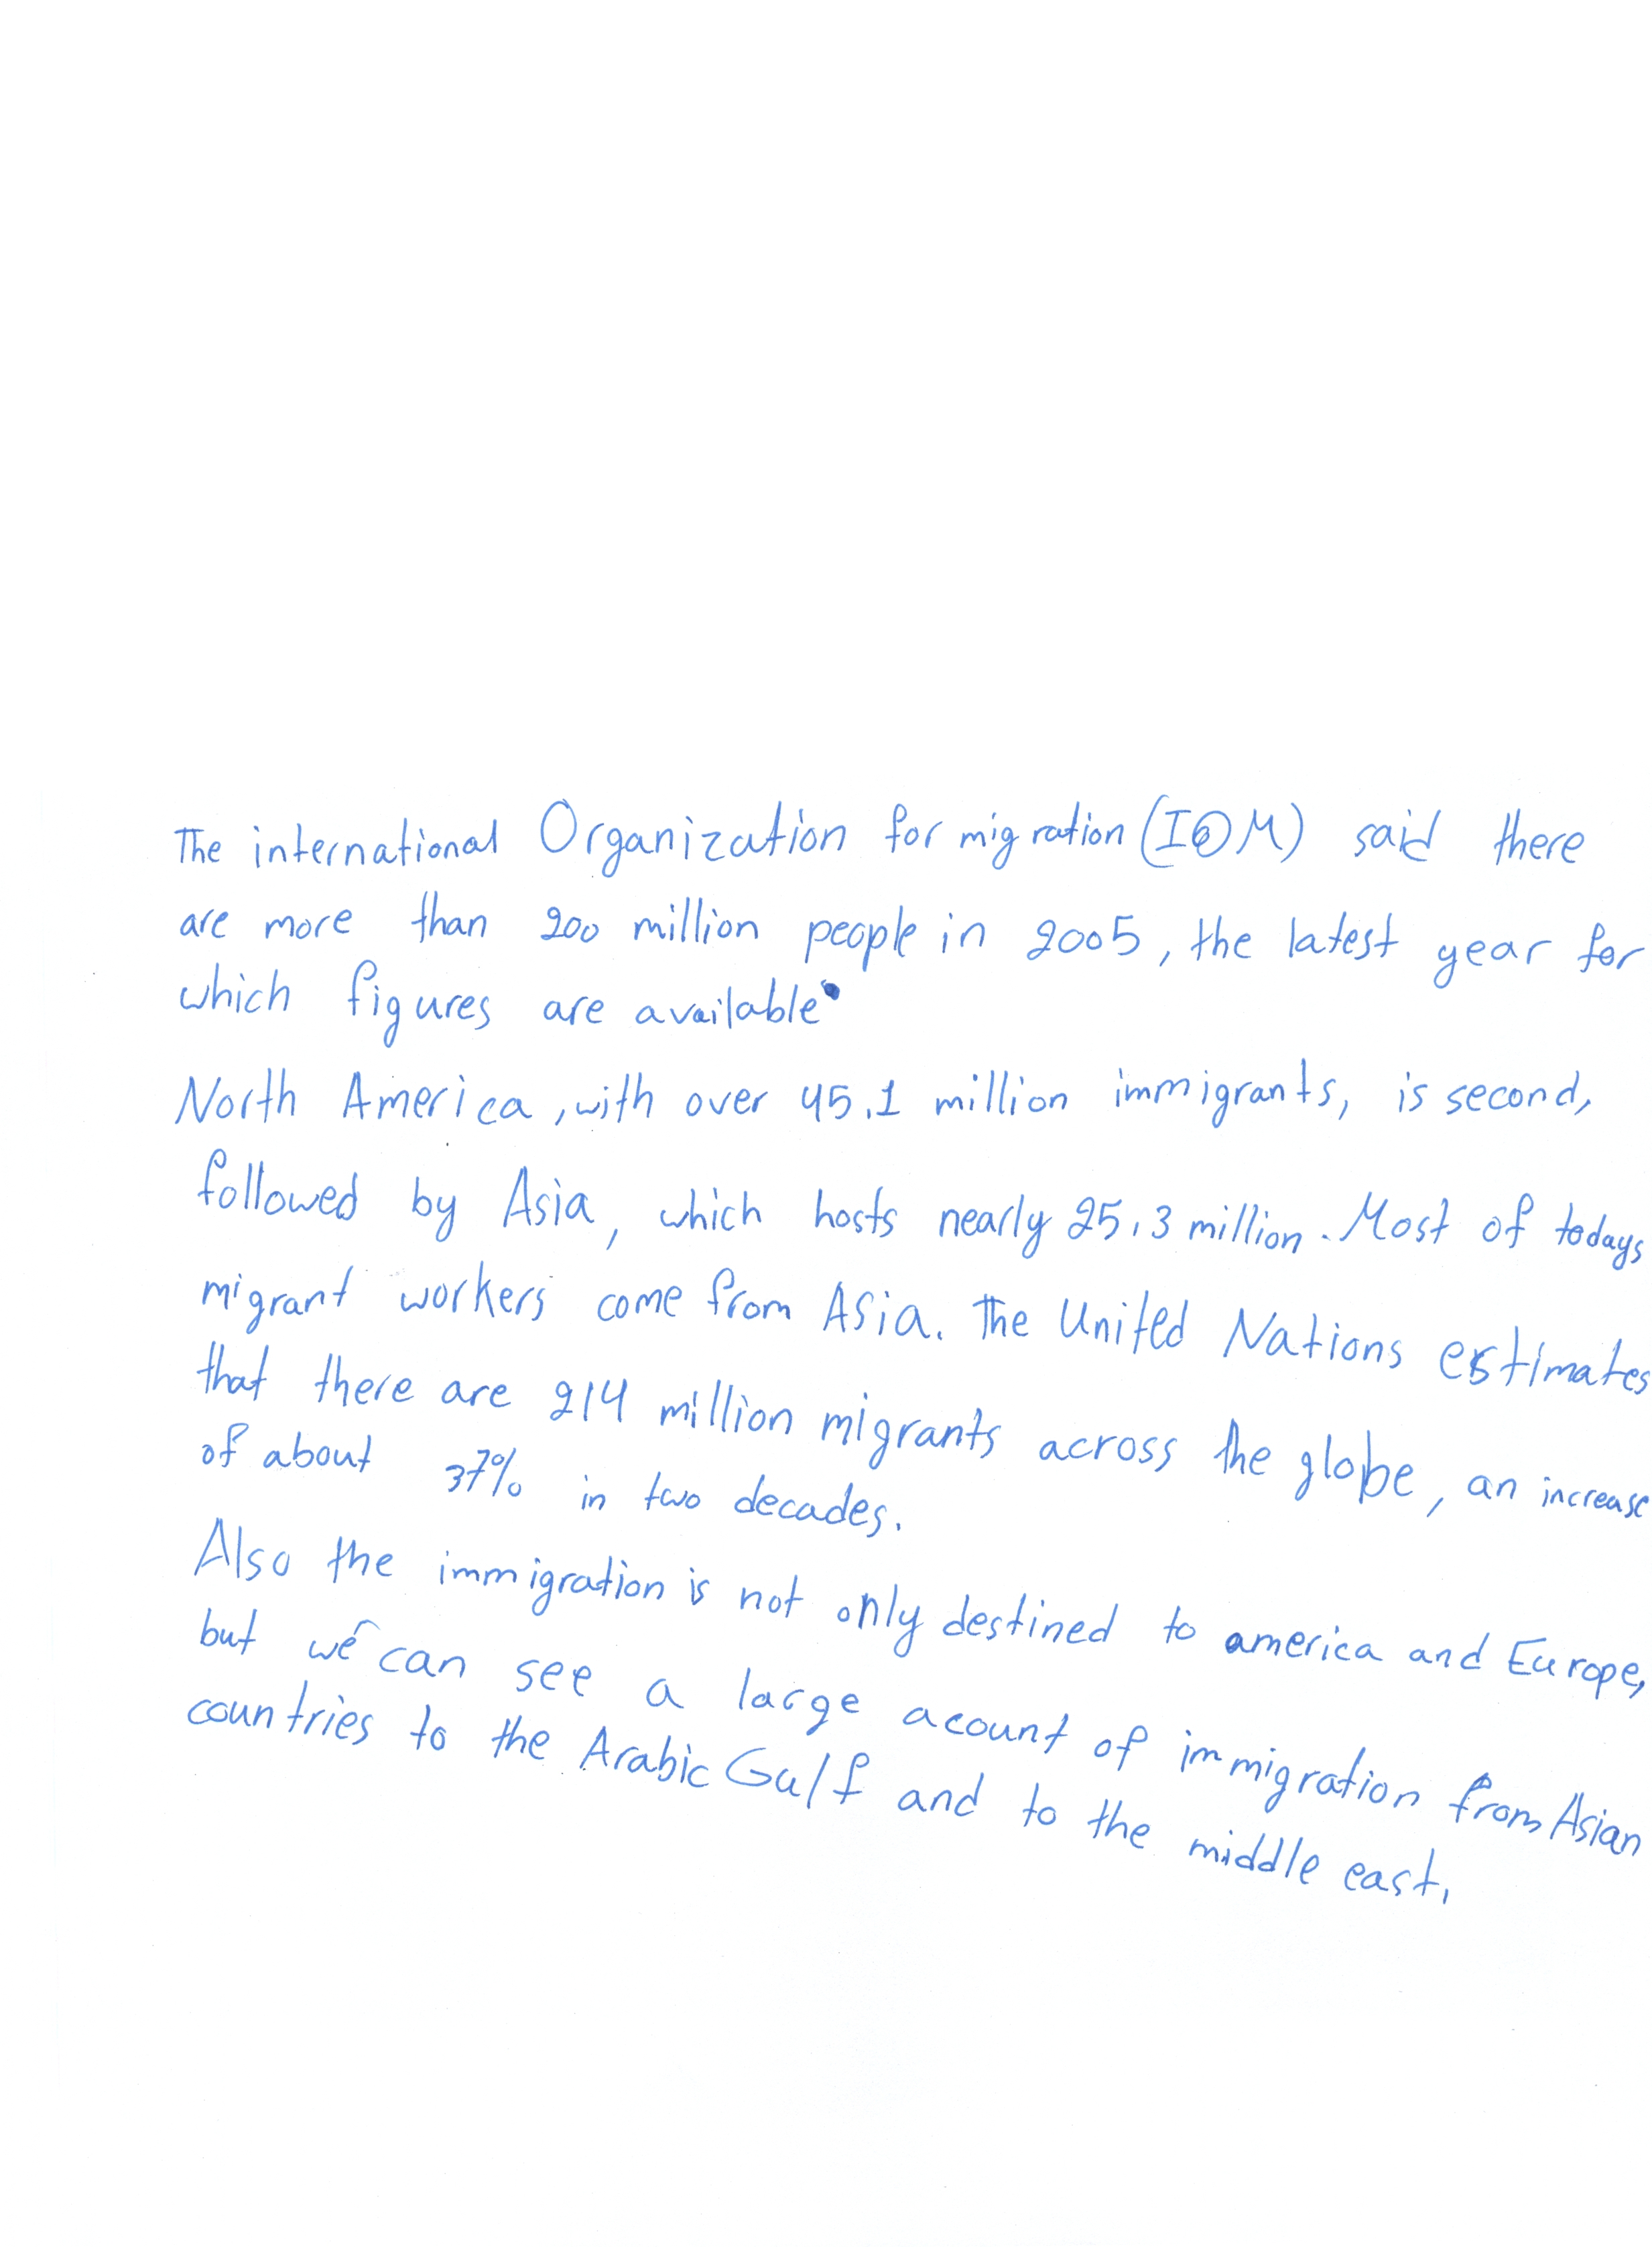 The international Organization for migration (IOM) said there
are more than 200 million people in 2005, the latest year for
which figures are available.
North America, with over 45.1 million immigrants, is second,
followed by Asia, which hosts nearly 25.3 million. Most of todays
migrant workers come from Asia. The United Nations estimates
that there are 214 million migrants across the globe, an increase
of about 37% in two decades.
Also the immigration is not only destined to america and Europe,
but we can see a large acount of immigration from Asian
countries to the Arabic Gulf and to the middle east.